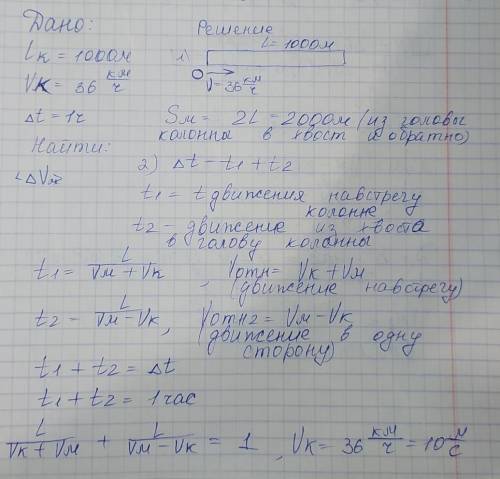 Дано:
Решение
lк = 1000м
1) L = 1000м
Vк = 36 км/ч
V = 36 км/ч
Δt = 1ч
Sм = 2L = 2000м (из головы
колонны в хвост и обратно)
Найти:
2) Δt - t1 + t2
t1 = t движения навстречу
колонне
t2 - движение из хвоста
в голову колонны
t1 = L/(Vм + Vк) , Vотн = Vк + Vм
(движение навстречу)
t2 - L/(Vм - Vк) , Vотн2 = Vм - Vк
(движение в одну
сторону)
t1 + t2 = Δt
t1 + t2 = 1 час
L/(Vк + Vм) + L/(Vм - Vк) = 1 , Vк = 36 км/ч = 10 м/с